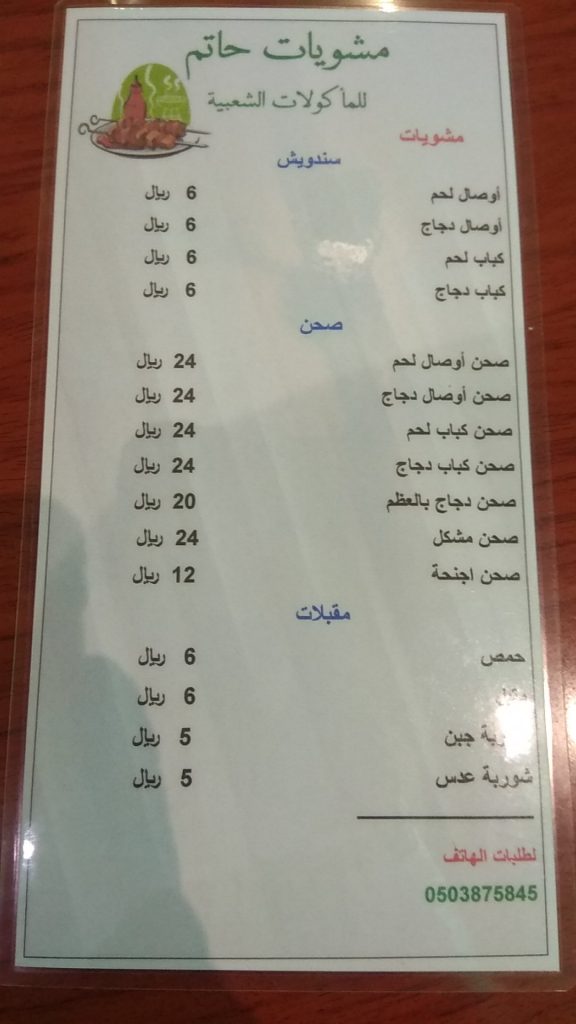 مشويات حاتم
للمأكولات الشعبية
مشويات
سندويش
أوصال لحم 6 ريال
أوصال دجاج 6 ريال
كباب لحم 6 ريال
كباب دجاج 6 ريال
صحن
صحن أوصال لحم 24 ريال
صحن أوصال دجاج 24 ريال
صحن كباب لحم 24 ريال
صحن كباب دجاج 24 ريال
صحن دجاج بالعظم 20 ريال
صحن مشكل 24 ريال
صحن اجنحة 12 ريال
مقبلات
حمص 6 ريال
6 ريال
جبن 5 ريال
شوربة عدس 5 ريال
لطلبات الهاتف
0503875845